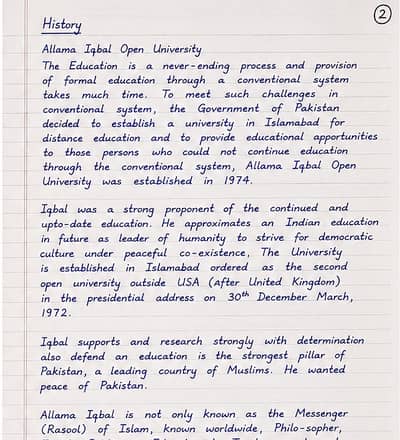 2
History
Allama Iqbal Open University
The Education is a never-ending process and provision
of formal education through a conventional system
takes much time. To meet such challenges in
conventional system, the Government of Pakistan
decided to establish a university in Islamabad for
distance education and to provide educational apportunities
to those persons who could not continue education
through the conventional system, Allama Iqbal Open
University was established in 1974.
Iqbal was a strong proponent of the continued and
upto-date education. He approximates an Indian education
in future as leader of humanity to strive for democratic
culture under peaceful co-existence, The University
is established in Islamabad ordered as the second
open university outside USA (After United Kingdom)
in the presidential address on 30th December March,
1972.
Iqbal supports and research strongly with determination
also defend an education is the strongest pillar of
Pakistan, a leading country of Muslims. He wanted
peace of Pakistan.
Allama Iqbal is not only known as the Messenger
(Rasool) of Islam, known worldwide, Philo-sopher,